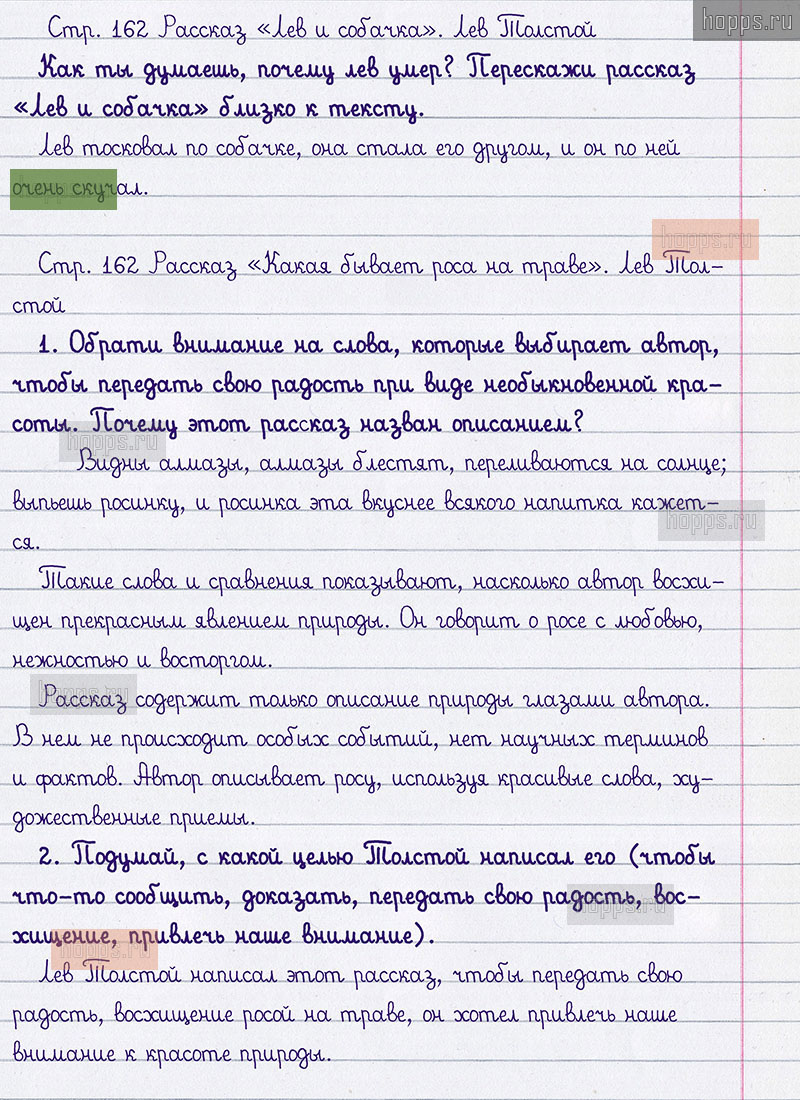 hopps.ru
Стр. 162 Рассказ «Лев и собачка». Лев Толстой
Как ты думаешь, почему лев умер? Перескажи рассказ
«Лев и собачка» близко к тексту.
Лев тосковал по собачке, она стала его другом, и он по ней
очень скучал.
hopps.ru
Стр. 162 Рассказ «Какая бывает роса на траве». Лев Тол-
стой
1. Обрати внимание на слова, которые выбирает автор,
чтобы передать свою радость при виде необыкновенной кра-
соты. Почему этот рассказ назван описанием?
hopps.ru
Видны алмазы, алмазы блестят, переливаются на солнце;
выпьешь росинку, и росинка эта вкуснее всякого напитка кажет-
hopps.ru
ся.
Такие слова и сравнения показывают, насколько автор восхи-
щен прекрасным явлением природы. Он говорит о росе с любовью,
нежностью и восторгом.
hopps.ru
Рассказ содержит только описание природы глазами автора.
В нем не происходит особых событий, нет научных терминов
и фактов. Автор описывает росу, используя красивые слова, ху-
дожественные приемы.
2. Подумай, с какой целью Толстой написал его (чтобы
что-то сообщить, доказать, передать свою радость, вос-
hopps.ru
хищение, привлечь наше внимание).
hopps.ru
Лев Толстой написал этот рассказ, чтобы передать свою
радость, восхищение росой на траве, он хотел привлечь наше
внимание к красоте природы.